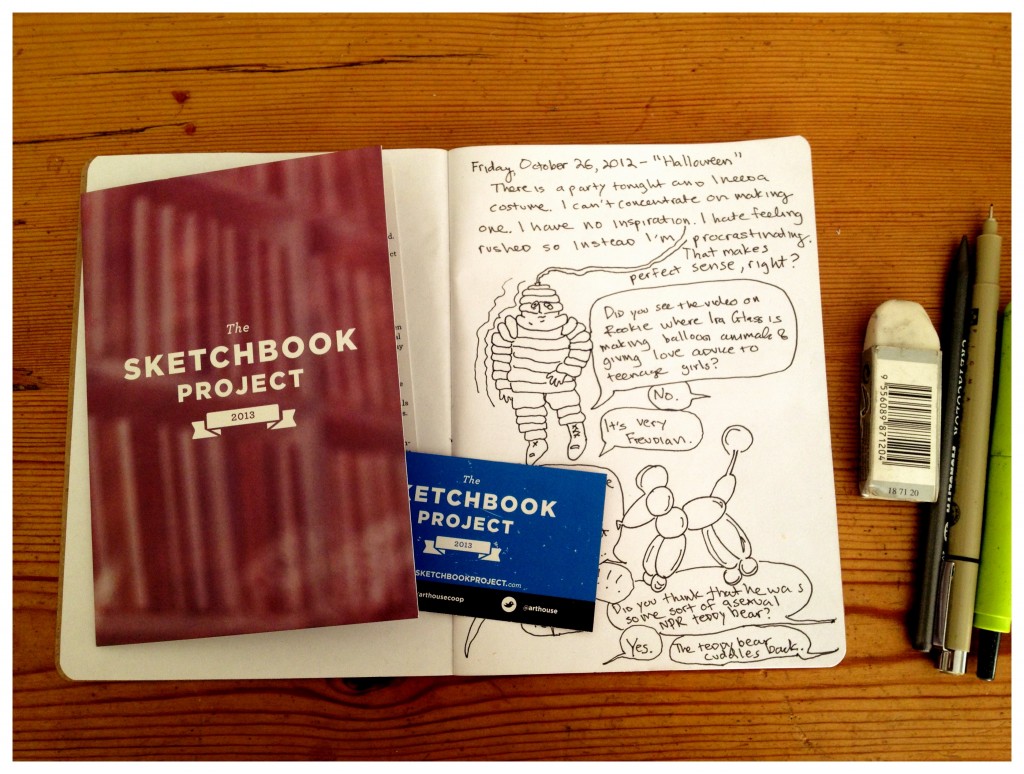 The
SKETCHBOOK
PROJECT
2013
Friday, October 26, 2012 - "Halloween"
There is a party tonight and I need a
costume. I can't concentrate on making
one. I have no inspiration. I hate feeling
rushed so instead I'm procrastinating.
That makes
perfect sense, right?
Did you see the video on
Rookie where Ira Glass is
making balloon animals &
giving love advice to
teenage girls?
No.
It's very
Freudian.
The
KETCHBOOK
PROJECT
2013
SKETCHBOOKPROJECT.com
arthousecoop
@arthouse
Did you think that he was
some sort of asexual
NPR teddy bear?
Yes.
The teddy bear
cuddles back.
9 556089 871204
18 71 20